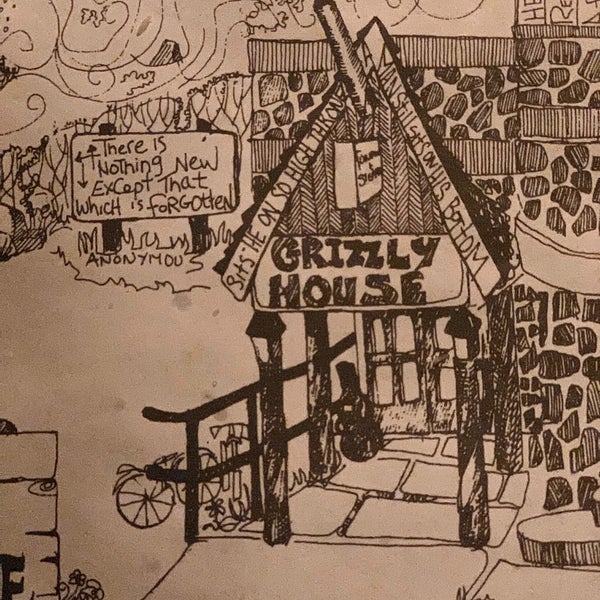 There is
Nothing New
Except That
Which is FORGOTTEN
ANONYMOUS
SITS HE ON SO HIGH
SITS ON HIS BOTTOM
GRIZZLY
HOUSE
HE
RE